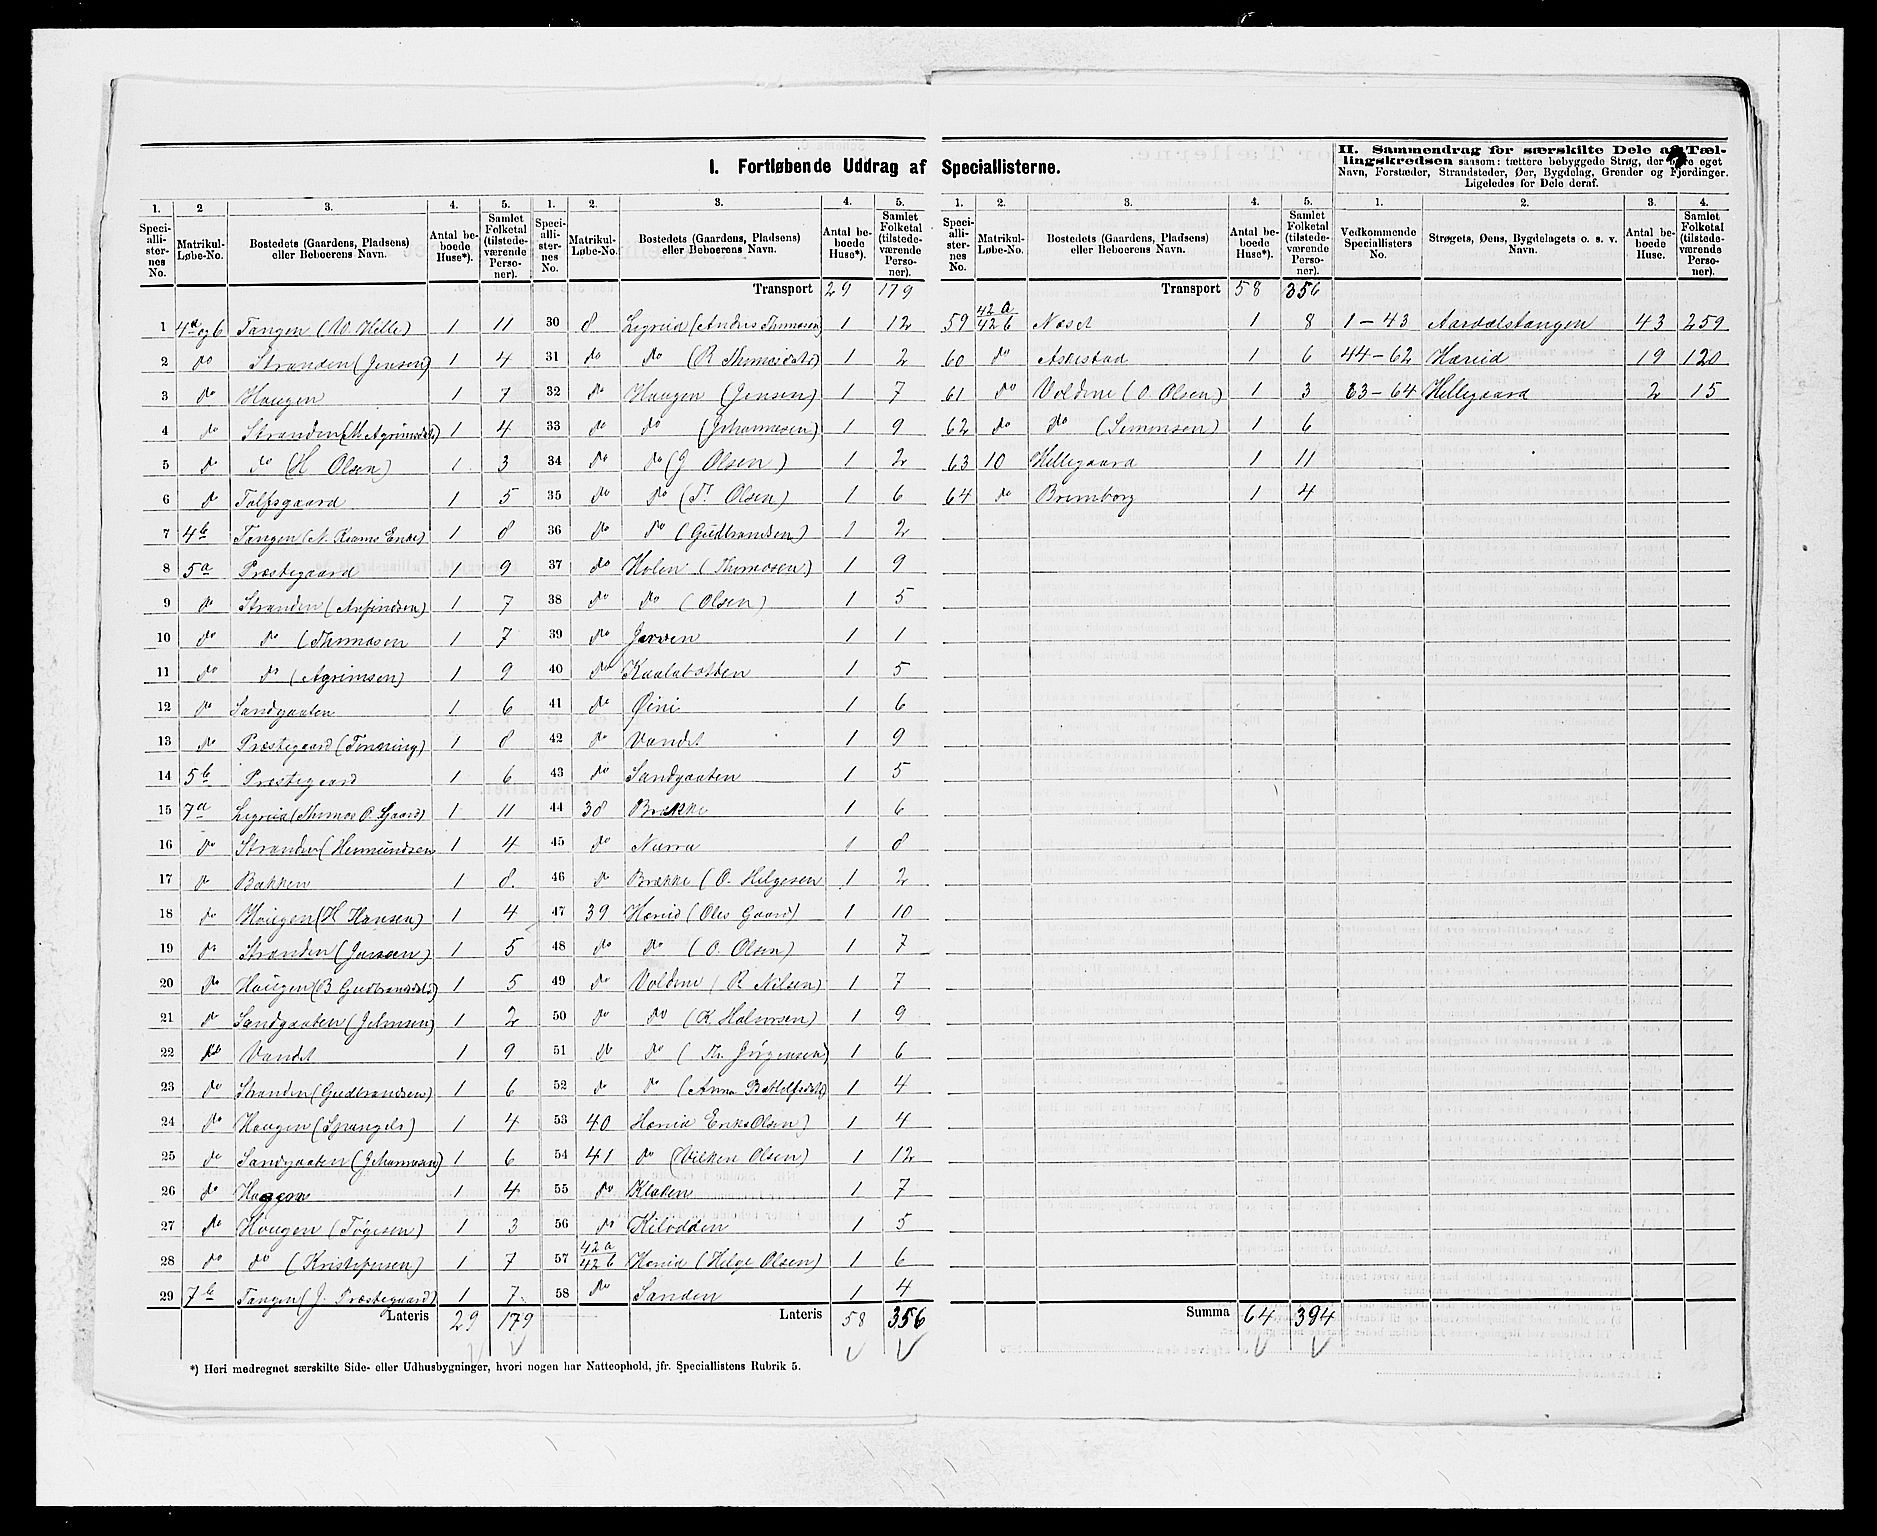 I. Fortløbende Uddrag af Speciallisterne.
1. Speciallisternes No. 2 Matrikul-Løbe-No. 3. Bostedets (Gaardens, Pladsens) eller Beboerens Navn. 4. Antal beboede Huse*). 5. Samlet Folketal (tilstedeværende Personer).
1 4a og b Tangen (W Hille) 1 11
2 do Stranden (Jensen) 1 4
3 do Haugen 1 7
4 do Stranden (M Agrimsdtr) 1 4
5 do do (H Olsen) 1 3
6 do Tolfsgaard 1 5
7 4b Tangen (N. Enke) 1 8
8 5a Præstegaard 1 9
9 do Stranden (Anfindsen) 1 7
10 do do (Thomasen 1 7
11 do do (Agrimsen) 1 9
12 do Sandgaaten 1 6
13 do Præstegaard (Tønning) 1 8
14 5b Præstegaard 1 6
15 7a Legreid (Thomas O. Gjaard) 1 11
16 do Stranden (Hermundsen 1 4
17 do Bakken 1 8.
18 do Haugen (H Hansen) 1 4
19 do Stranden (Jansen) 1 5
20 do Haugen (B Gudbrandsdtr) 1 5
21 do Sandgaaten (Johnsen) 1 2
22 do Vandet 1 9
23 do Stranden (Gudbrandsen) 1 6
24 do Haugen (Spangelo) 1 4
25 do Sandgaaten (Johannesen) 1 6
26 do 1 4
27 do Haugen (Tøgesen) 1 3
28 do do (Kristofersen) 1 7
29 7b Tangen (J. Præstegaard) 1 7.
Lateris 29 179
*) Heri medregnet særskilte Side- eller Udhusbygninger, hvori nogen har Natteophold, jfr. Speciallistens Rubrik 5.
1. Speciallisternes No. 2. Matrikul-Løbe-No. 3. Bostedets (Gaardens, Pladsens) eller Beboerens Navn. 4. Antal beboede Huse*). 5. Samlet Folketal (tilstedeværende Personer).
Transport 29 179
30 8 Legreid (Andres Thomasen) 1 12
31 do do (R Thomasdatr) 1 2
32 do Haugen (Jensen) 1 7
33 do do (Johannesen) 1 9
34 do do (J Olsen) 1 2
35 do do (Th Olsen) 1 6
36 do do (Gudbrandsen) 1 2
37 do Holen (Thomasen) 1 9
38 do do (Olsen) 1 5
39 do Jorven 1 1
40 do Kaalabotten 1 5
41 do Øini 1 6
42 do Vandet 1 9
43 do Sandgaaten 1 5
44 38 Brække 1 6
45 do Nærra 1 8
46 do Brække (O. Helgesen 1 2
47 39 Hæreid (Oles Gaard) 1 10
48 do do (O. Olsen) 1 7
49 do Voldene (R Nilsen) 1 7
50 do do (K. Halvorsen) 1 9
51 do do (Th. Jörgensen) 1 6
52 do do (Anna Bottolfsdatr) 1 4
53 40 Hæreid Eriks Olsen) 1 4
54 41 do (Vilken Olsen) 1 12
55 do Kleven 1 7
56 do Kilodden 1 5
57 42a 42b Hæreid (Helge Olsen) 1 6
58 do Sanden 1 4
Lateris 58 356
1. Speciallisternes No. 2. Matrikul-Løbe-No. 3. Bostedets (Gaardens, Pladsens) eller Beboerens Navn. 4. Antal beboede Huse*). 5. Samlet Folketal (tilstedeværende Personer).
Transport 58 356
59 42a 42b Næset 1 8
60 do Askestad 1 6
61 do Voldene (O. Olsen) 1 3
62 do do (Simonsen) 1 6
63 10 Hellegaard 1 11
64 do Bremborg 1 4
Summa 64 394
II. Sammendrag for særskilte Dele af Tællingskredsen saasom: tættere bebyggede Strøg, der bære eget Navn, Forstæder, Strandsteder, Øer, Bygdelag, Grender og Fjerdinger. Ligeledes for Dele deraf.
1. Vedkommende Speciallisters No. 2. Strøgets, Øens, Bygdelagets o. s. v. Navn. 3. Antal beboede Huse. 4. Samlet Folketal (tilstedeværende Personer).
1 - 43 Aardalstangen 43 259
44 - 62 Hæreid 19 120
63 - 64 Hellegaard 2 15